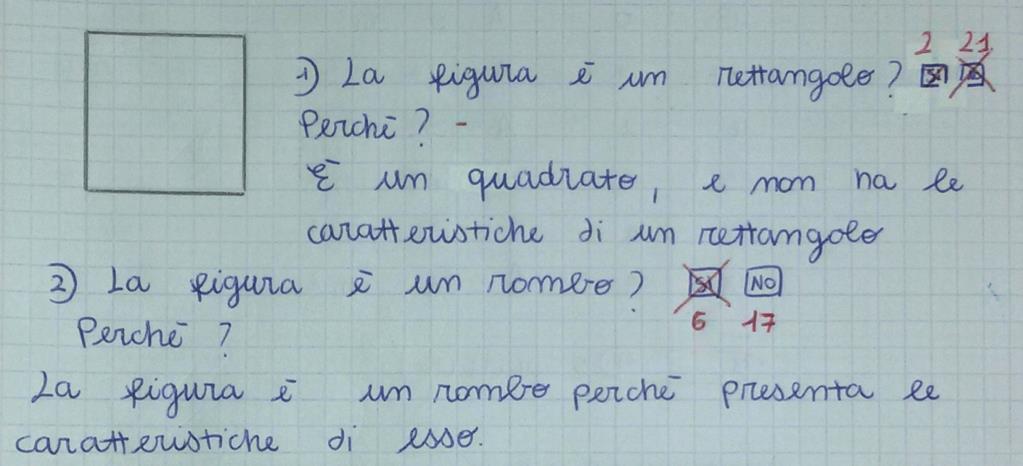 2 21
1) La figura è un rettangolo? SI NO
Perchè? -
È un quadrato, e non ha le
caratteristiche di un rettangolo
2) La figura è un rombo? SI NO
6 17
Perchè?
La figura è un rombo perchè presenta le
caratteristiche di esso.